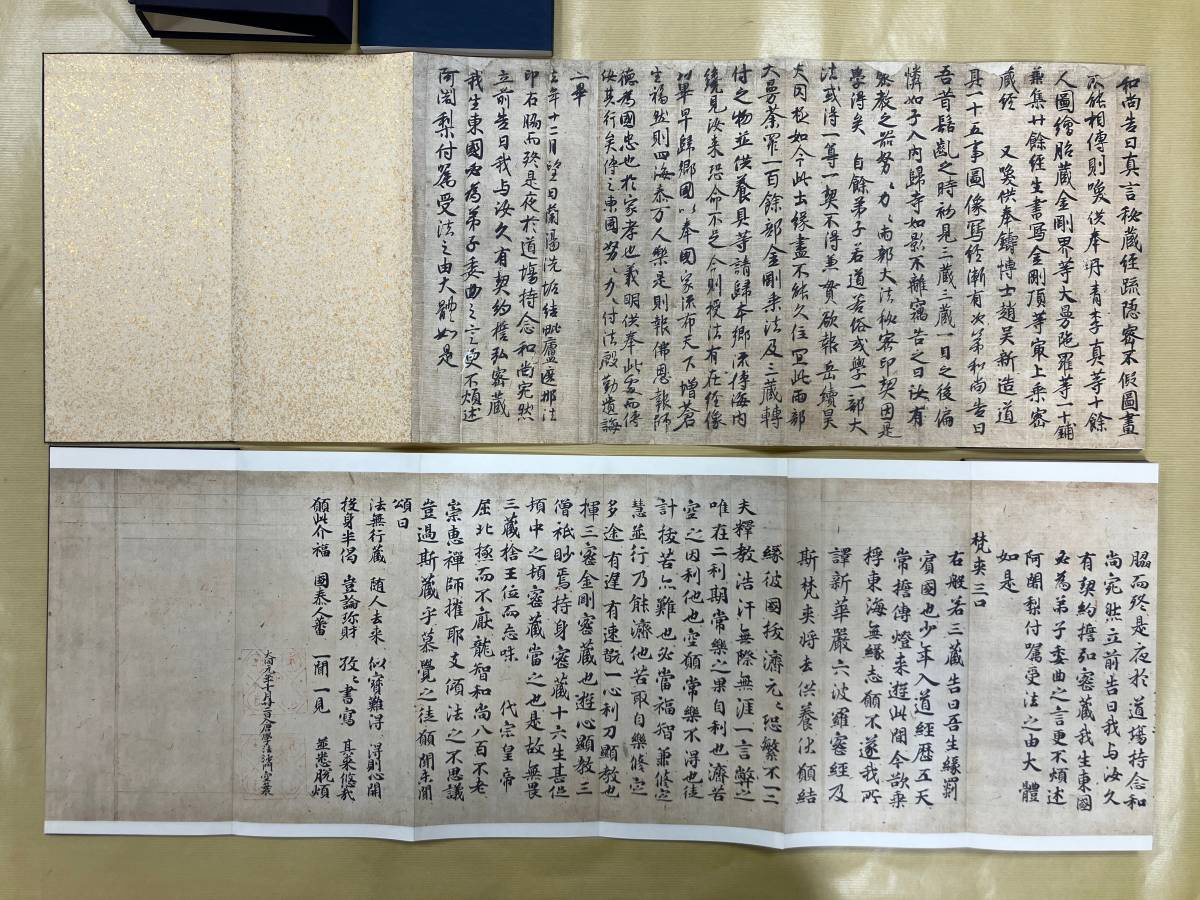 和尚告曰真言秘蔵経疏隠密不假圖畫
不能相傳則喚供奉丹青李真等十餘
人圖繪胎蔵金剛界等大曼陁羅等一十鋪
兼集廿餘経生書寫金剛頂等寂上乗密
蔵経 又喚供奉鑄博士趙吴新造道
具一十五事圖像寫経漸有次第和尚告曰
吾昔髫齔之時初見三蔵三蔵一目之後偏
憐如子入内歸寺如影不離竊告之曰汝有
密教之器努々力々兩部大法秘密印契因是
學得矣 自餘弟子若道若俗或學一部大
法或得一尊一契不得兼貫欲報岳續昊
天罔極如今此土縁盡不能久住冝此兩部
大曼荼羅一百餘部金剛乗法及三蔵轉
付之物並供養具等請歸本郷流傳海内
纔見汝来恐命不足今則授法有在経像
功畢早歸郷國以奉國家流布天下増蒼
生福然則四海泰万人樂是則報佛恩報師
德為國忠也於家孝也義明供奉此處而傳
汝其行矣傳之東國努々力々付法慇勤遺誨
亦畢
去年十二月望日蘭湯洗垢結毗廬遮那法
印右脇而終是夜於道塲持念和尚宛然
立前告曰我与汝久有契約誓弘密蔵
我生東國必為弟子委曲之言更不煩述
阿闍梨付属受法之由大體如是
脇而終是夜於道塲持念和
尚宛然立前告曰我与汝久
有契約誓弘密蔵我生東國
必為弟子委曲之言更不煩述
阿闍梨付嘱受法之由大體
如是
梵夾三口
右般若三蔵告曰吾生縁罽
賓國也少年入道経歴五天
常誓傳燈来遊此間今欲乗
桴東海無縁志願不遂我所
譯新華嚴六波羅蜜経及
斯梵夾将去供養伏願結
縁彼國拔濟元々恐繁不一二
夫釋教浩汗無際無涯一言弊之
唯在二利期常樂之果自利也濟苦
空之因利他也空願常樂不得也徒
計拔苦亦難也必當福智兼修定
慧並行乃能濟他苦取自樂修定
多途有遅有速翫一心利刀顯教也
揮三密金剛密蔵也遊心顯教三
僧祇眇焉持身密蔵十六生甚促
頓中之頓密蔵當之也是故無畏
三蔵捨王位而忘味 代宗皇帝
屈北極而不厭龍智和尚八百不老
崇恵禪師摧耶支傾法之不思議
豈過斯蔵乎慕覺之徒願未聞
頌曰
法無行蔵 随人去来 似寳難得 得則心開
投身半偈 豈論珎財 孜々書寫 其来悠哉
願此介福 國泰人蕃 一聞一見 並悉脱煩